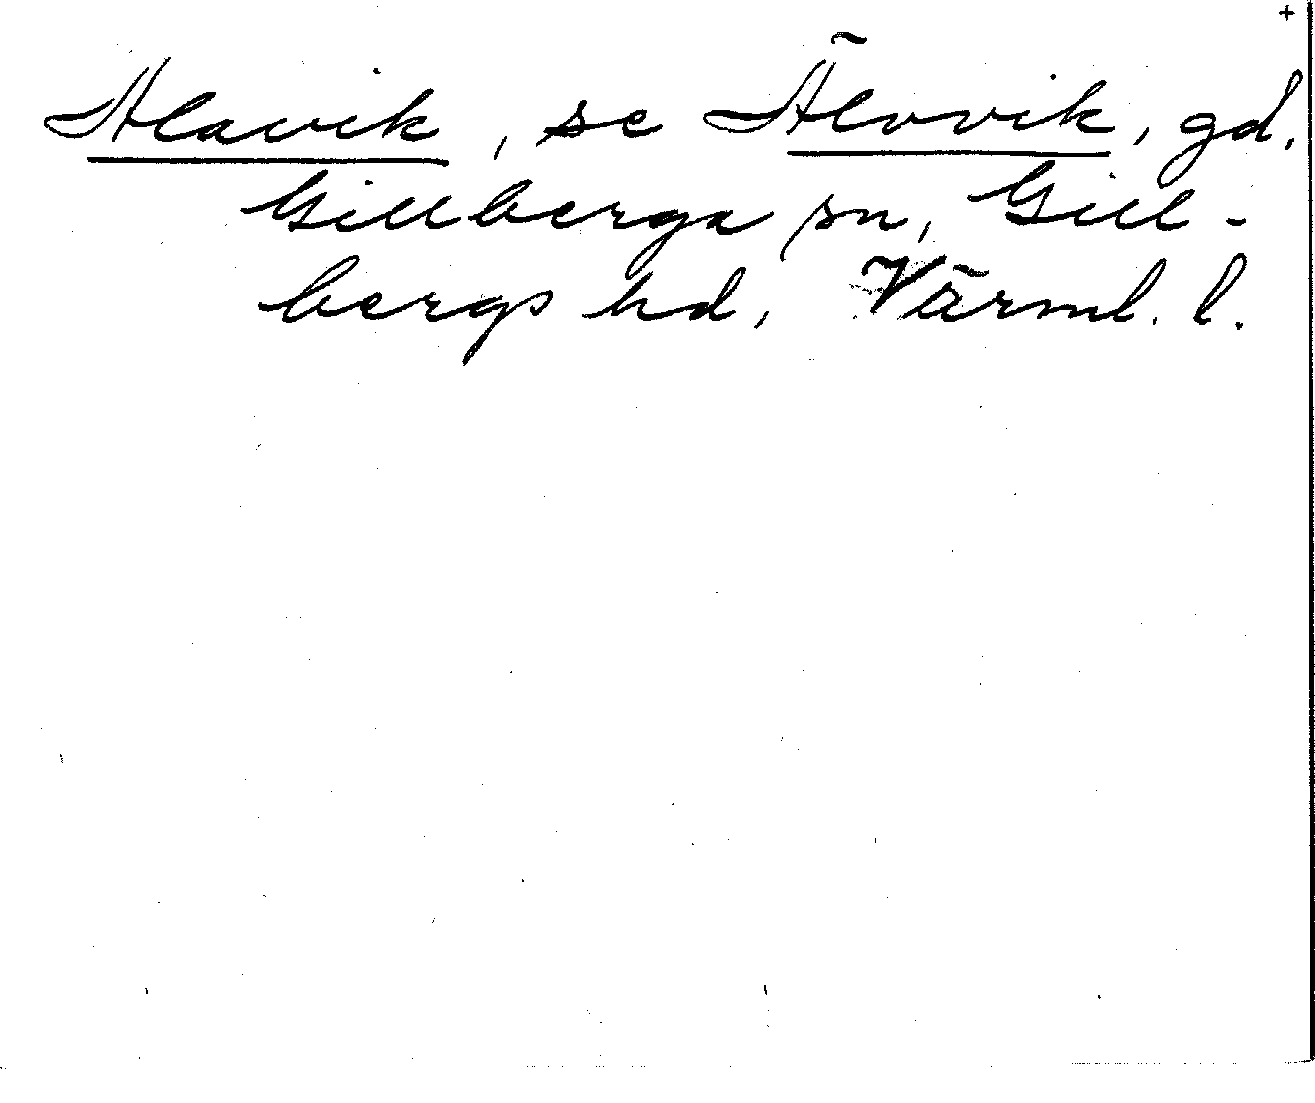 +
Alavik, se Älovik, gd,
Gillberga sn, Gill-
bergs hd, Värml. l.